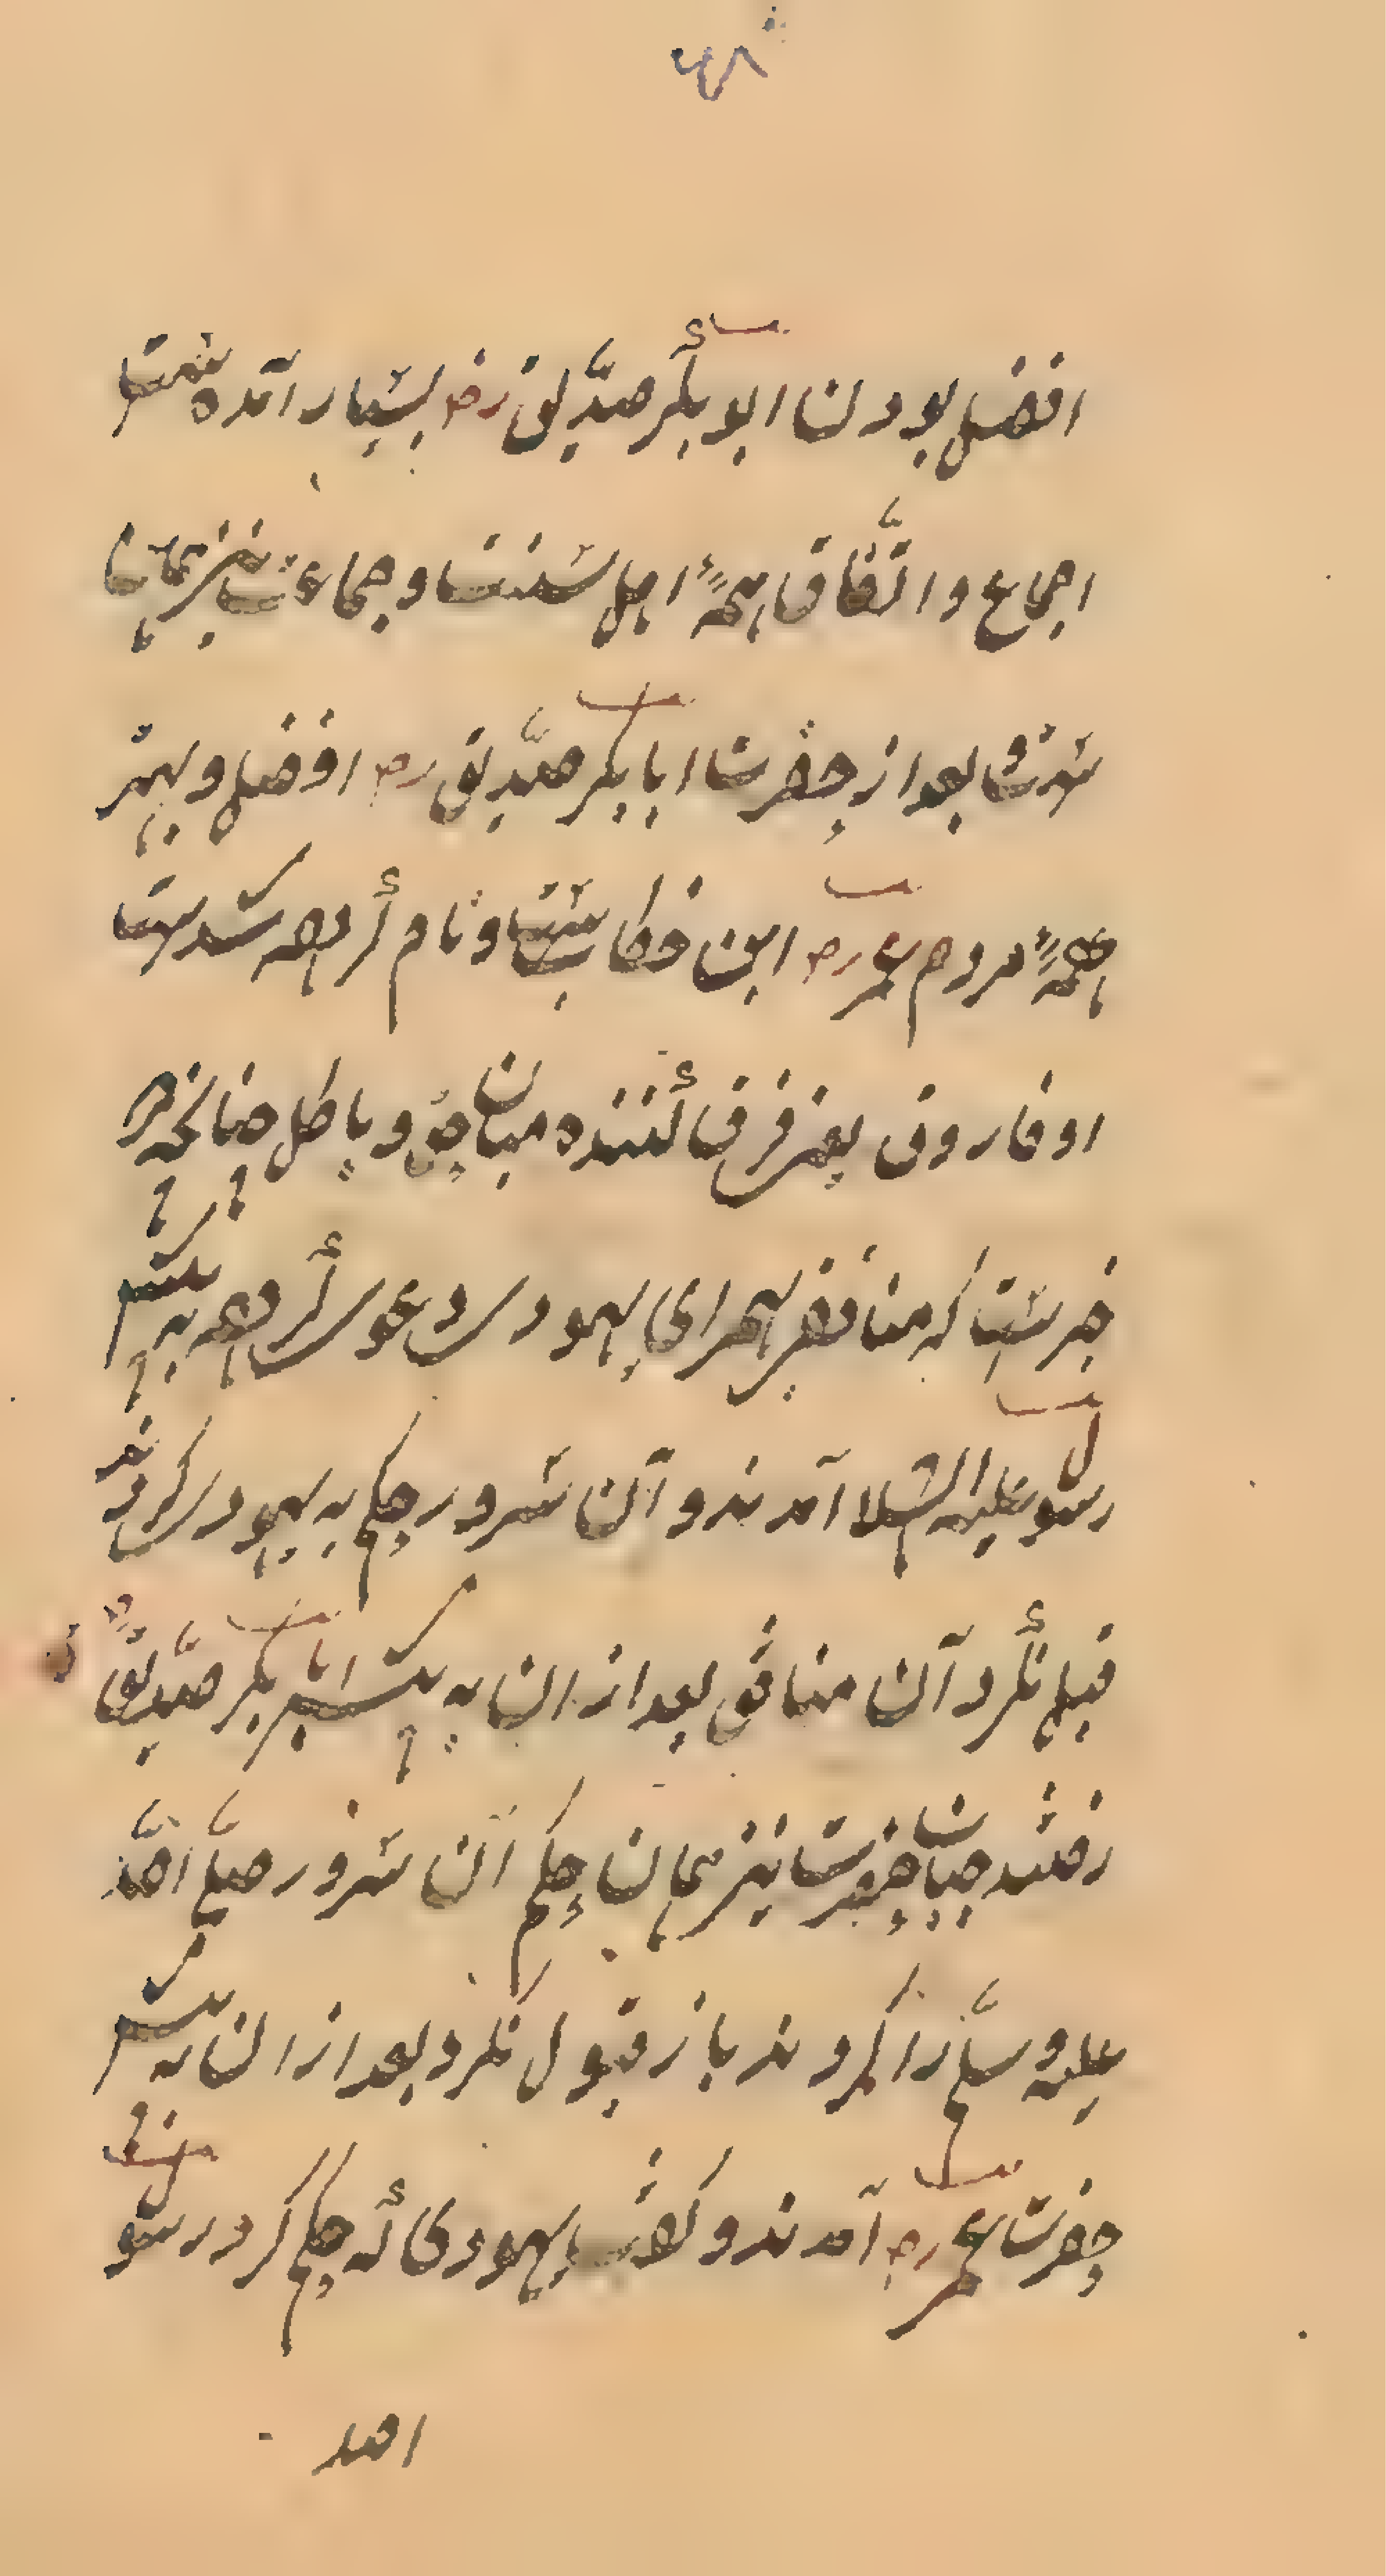 ۴۸
افضل بودن ابو بکر صدّیق رض بسیار آمده است
اجماع و اتّفاق همهٔ اهل سنت و جماعت نیز بهمان
است و بعد از حضرت ابا بکر صدّیق رض افضل و بهتر
همهٔ مردم عمر رض ابن خطابست و نام کرده شدست
او فاروق یعنی فرق کننده میان حق و باطل چنانچه در
خبرست که منافقی همرای یهودی دعوی کرده به پیش
رسول علیه السلام آمدند و آن سرور حکم به یهودی کردند
قبل نکرد آن منافق بعد از ان به پیش ابا بکر صدّیق
رفتند جناب حضرت نیز همان حکم آن سرور صلّی الله
علیه و سلّم را کردند باز قبول نکرد بعد از ان به پیش
حضرت عمر رض آمدند و گفت یهودی که حکم کرد رسول